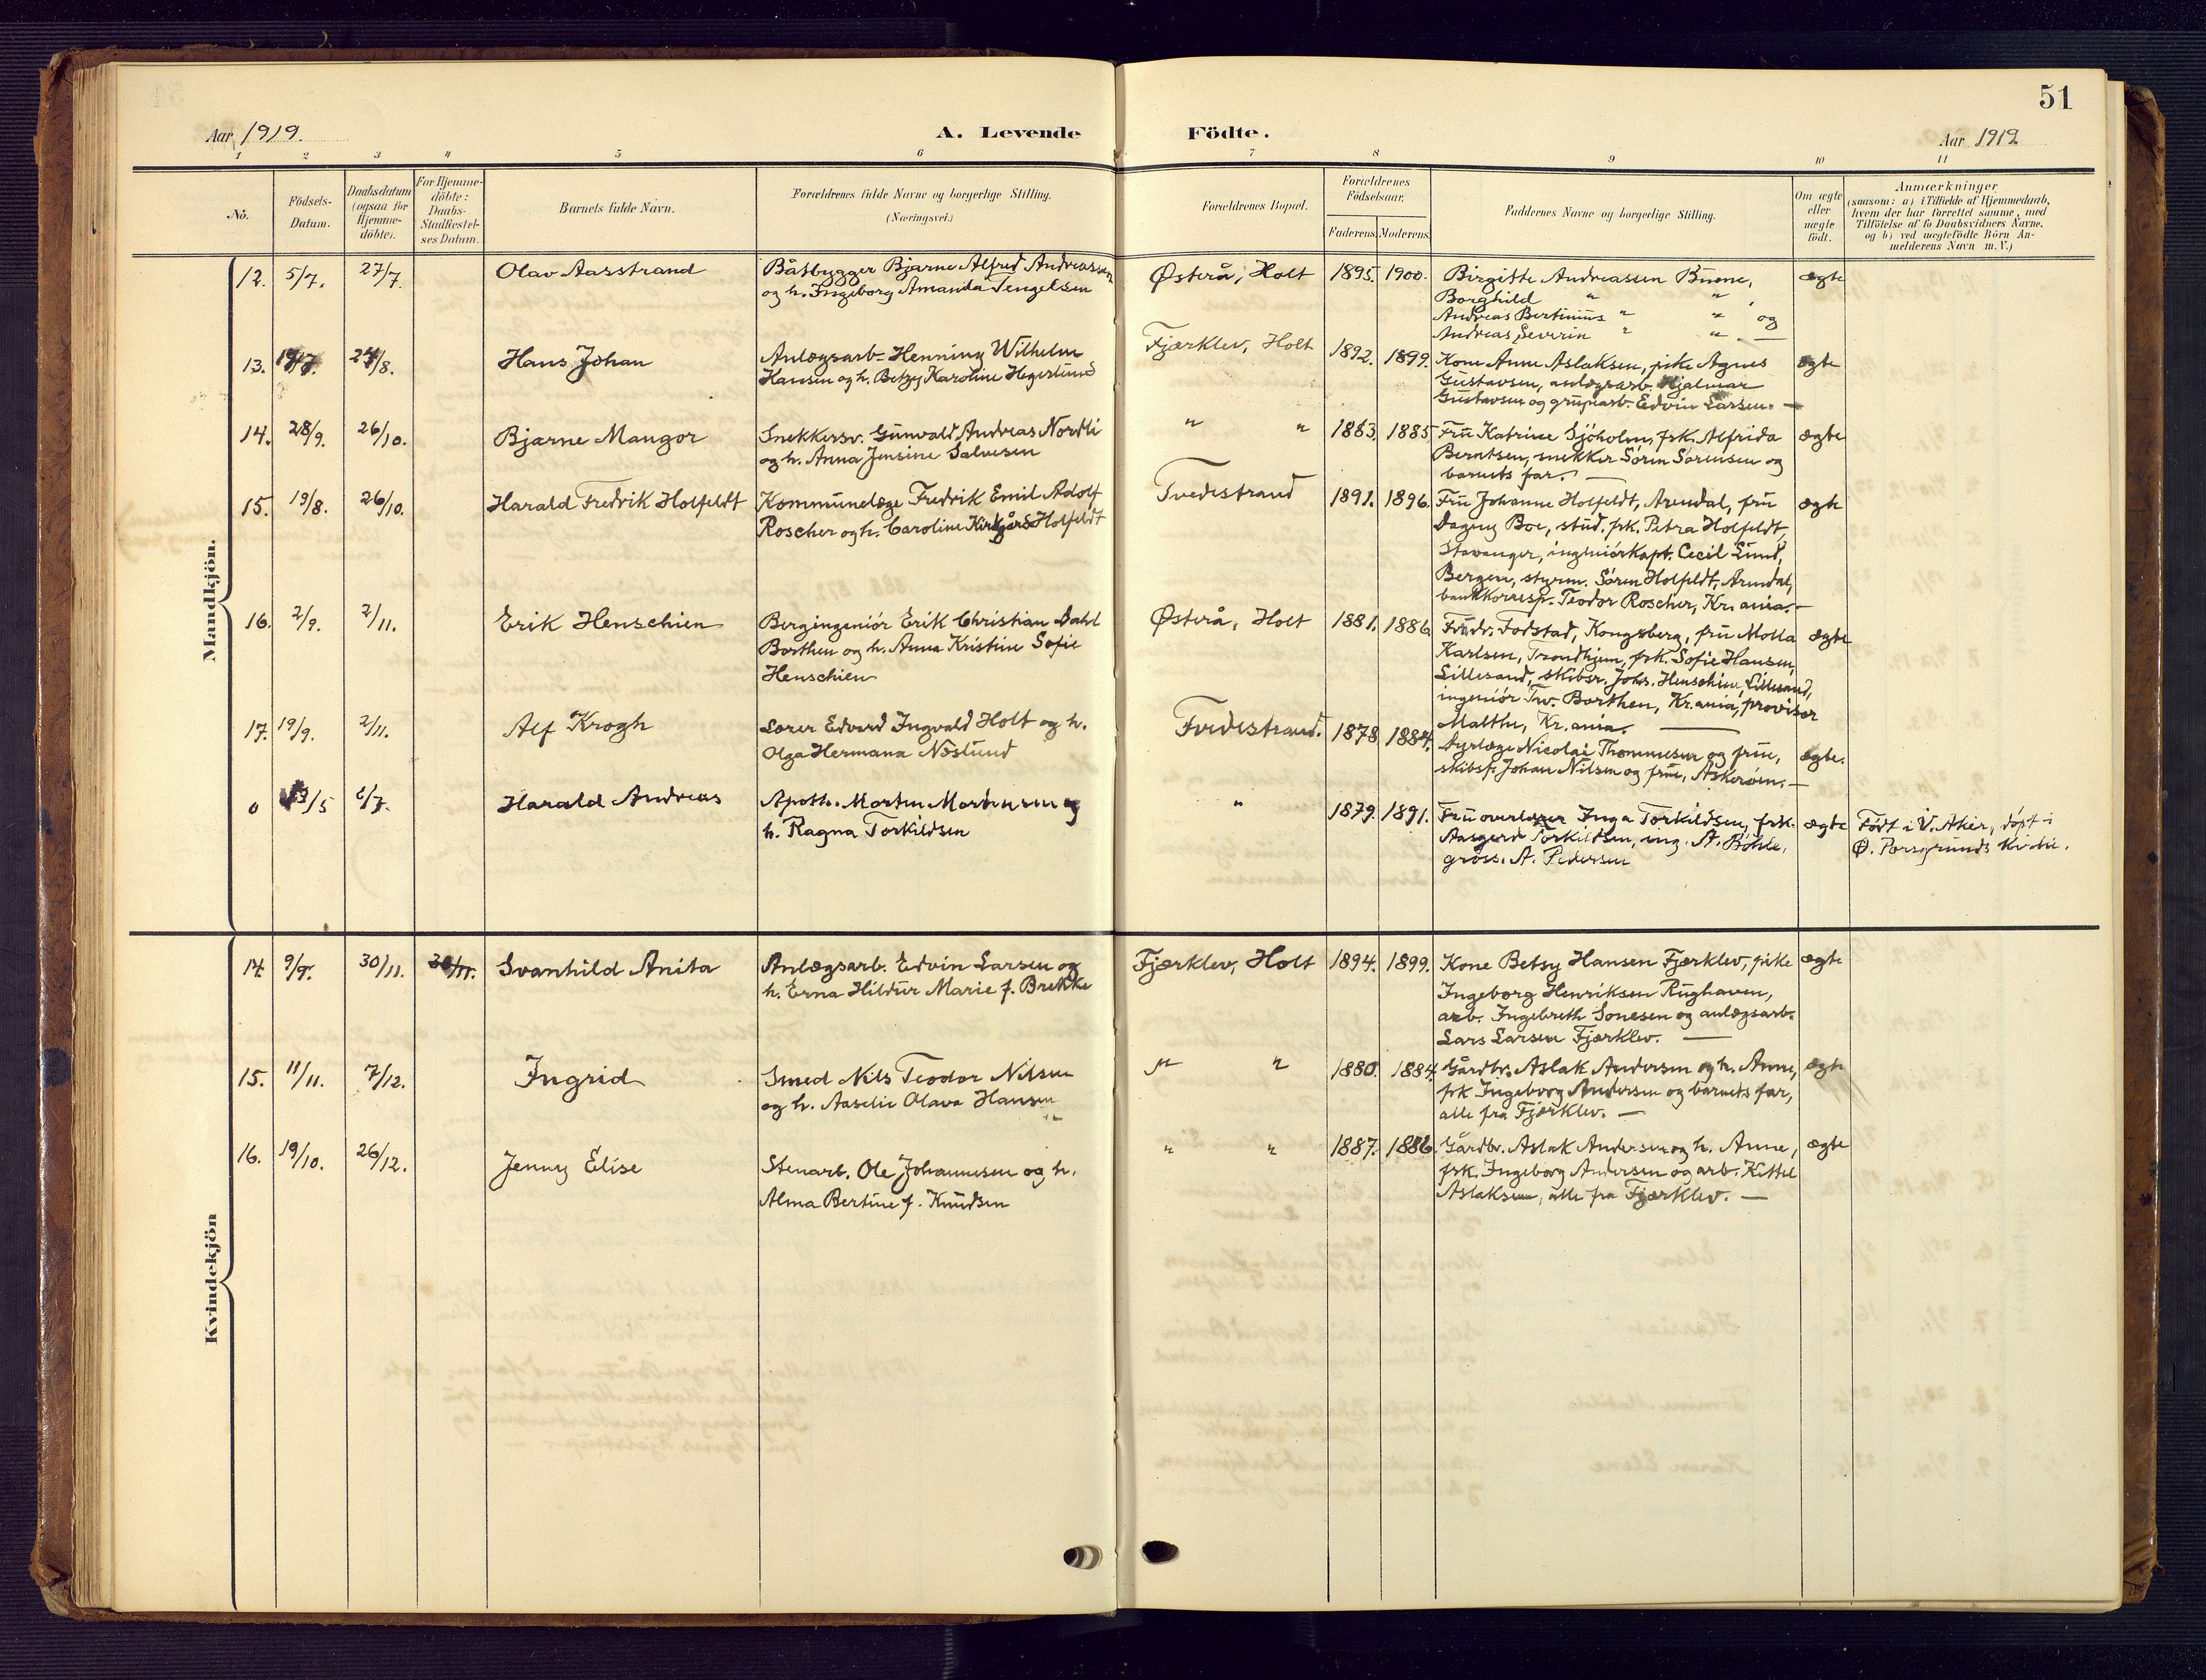 51
Aar 1919.
A. Levende Födte.
Aar 1919
1 2 3 4 5 6 7 8 9 10 11
No.
Födsels-
Datum.
Daabsdatum
(ogsaa for
Hjemme-
döbte).
For Hjemme-
döbte:
Daabs-
Stadfæstel-
ses Datum.
Barnets fulde Navn.
Forældrenes fulde Navne og borgerlige Stilling.
(Næringsvei.)
Forældrenes Bopæl.
Forældrenes
Födselsaar.
Faderens. Moderens.
Faddernes Navne og borgerlige Stilling.
Om ægte
eller
uægte
født.
Anmærkninger
(saasom: a) i Tilfælde af Hjemmedaab,
hvem der har forrettet samme, med
Tilföielse af to Daabsvidners Navne,
og b) ved uægtefödte Börn An-
melderens Navn m. V.)
Mandkjön.
12. 5/7. 27/7. Olav Aasstrand
Båtbygger Bjarne Alfred Andreassen
og h. Ingeborg Amanda Tengelsen
Østerå, Holt 1895. 1900.
Birgitte Andreasen Buene,
Borghild " " ,
Andreas Bertinius " " og
Andreas Severin " " —
ægte
13. 24/8. Hans Johan
Anlægsarb. Henning Wilhelm
Hansen og h. Betzy Karoline Hegerlund
Fjærklev, Holt 1892. 1899.
Kone Anne Aslaksen, pike Agnes
Gustavsen, anlægsarb. Hjalmar
Gustavsen og grubearb. Edvin Larsen. —
ægte
14. 28/9. 26/10. Bjarne Maugor
Snekkersv. Gunvald Andreas Nordli
og h. Anna Jensine Salvesen
" " 1863. 1885
Fru Katrine Sjöholm, frk. Alfrida
Berntsen, snekker Sören Sörensen og
barnets far. —
ægte
15. 19/8. 26/10. Harald Fredrik Holfeldt
Kommunelæge Fredrik Emil Adolf
Roscher og h. Caroline Kirkgård Holfeldt
Tvedestrand 1891. 1896.
Fru Johanne Holfeldt, Arendal, fru
Dagny Boe, stud. frk. Petra Holfeldt,
Stavanger, ingeniörkapt. Cecil Lund,
Bergen, styrm. Sören Holfeldt, Arendal,
bankkorresp. Teodor Roscher, Kr.ania. —
ægte
16. 2/9. 2/11. Erik Henschien
Bergingeniör Erik Christian Dahl
Borthen og h. Anna Kristine Sofie
Henschien
Østerå, Holt 1881. 1886
Fodstad, Kongsberg, fru Molla
Karlsen, Trondhjem, frk. Sofie Hansen,
Lillesand, skibsr. Johs. Henschien, Lillesand,
ingeniör Borthen, Kr.ania, provisor
Malthe, Kr.ania. —
ægte
17. 19/9. 2/11. Alf Krogh
Lærer Edvard Ingvald Holt og h.
Olga Hermana Næslund
Tvedestrand. 1878 1884.
Dyrlæge Nicolai Thommesen og frue,
skibsf. Johan Nilsen og frue, Askeröen. —
ægte.
0 6/7. Harald Andreas
Apoth. Morten Mortensen og
h. Ragna Torkildsen
" 1879. 1891.
Fru overlærer Inga Torkildsen, frk.
Aasgerd Torkildsen, ing. A. Böhle,
gross. A. Pedersen
ægte
Födt i V. Aker, döpt i
Ø. Porsgrunds kirke.
Kvindekjön
14. 9/9. 30/11. 30/11. Svanhild Anita
Anlægsarb. Edvin Larsen og
h. Erna Hildur Marie f. Brekke
Fjærklev, Holt 1894. 1899.
Kone Betsy Hansen Fjærklev, pike
Ingeborg Henriksen Rughaven,
arb. Ingebreth Sonesen og anlægsarb.
Lars Larsen Fjærklev. —
ægte
15. 11/11. 7/12. Ingrid
Smed Nils Teodor Nilsen
og h. Aaselie Olava Hansen
" " 1880. 1884.
Gårdbr. Aslak Andersen og h. Anne,
frk Ingeborg Andersen og barnets far,
alle fra Fjærklev. —
ægte
16. 19/10. 26/12. Jenny Elise
Stenarb. Ole Johannesen og h.
Alma Bertine f. Knudsen
" " 1887. 1886.
Gårdbr. Aslak Andersen og h. Anne,
frk. Ingeborg Andersen og arb. Kittel
Aslaksen, alle fra Fjærklev. —
ægte